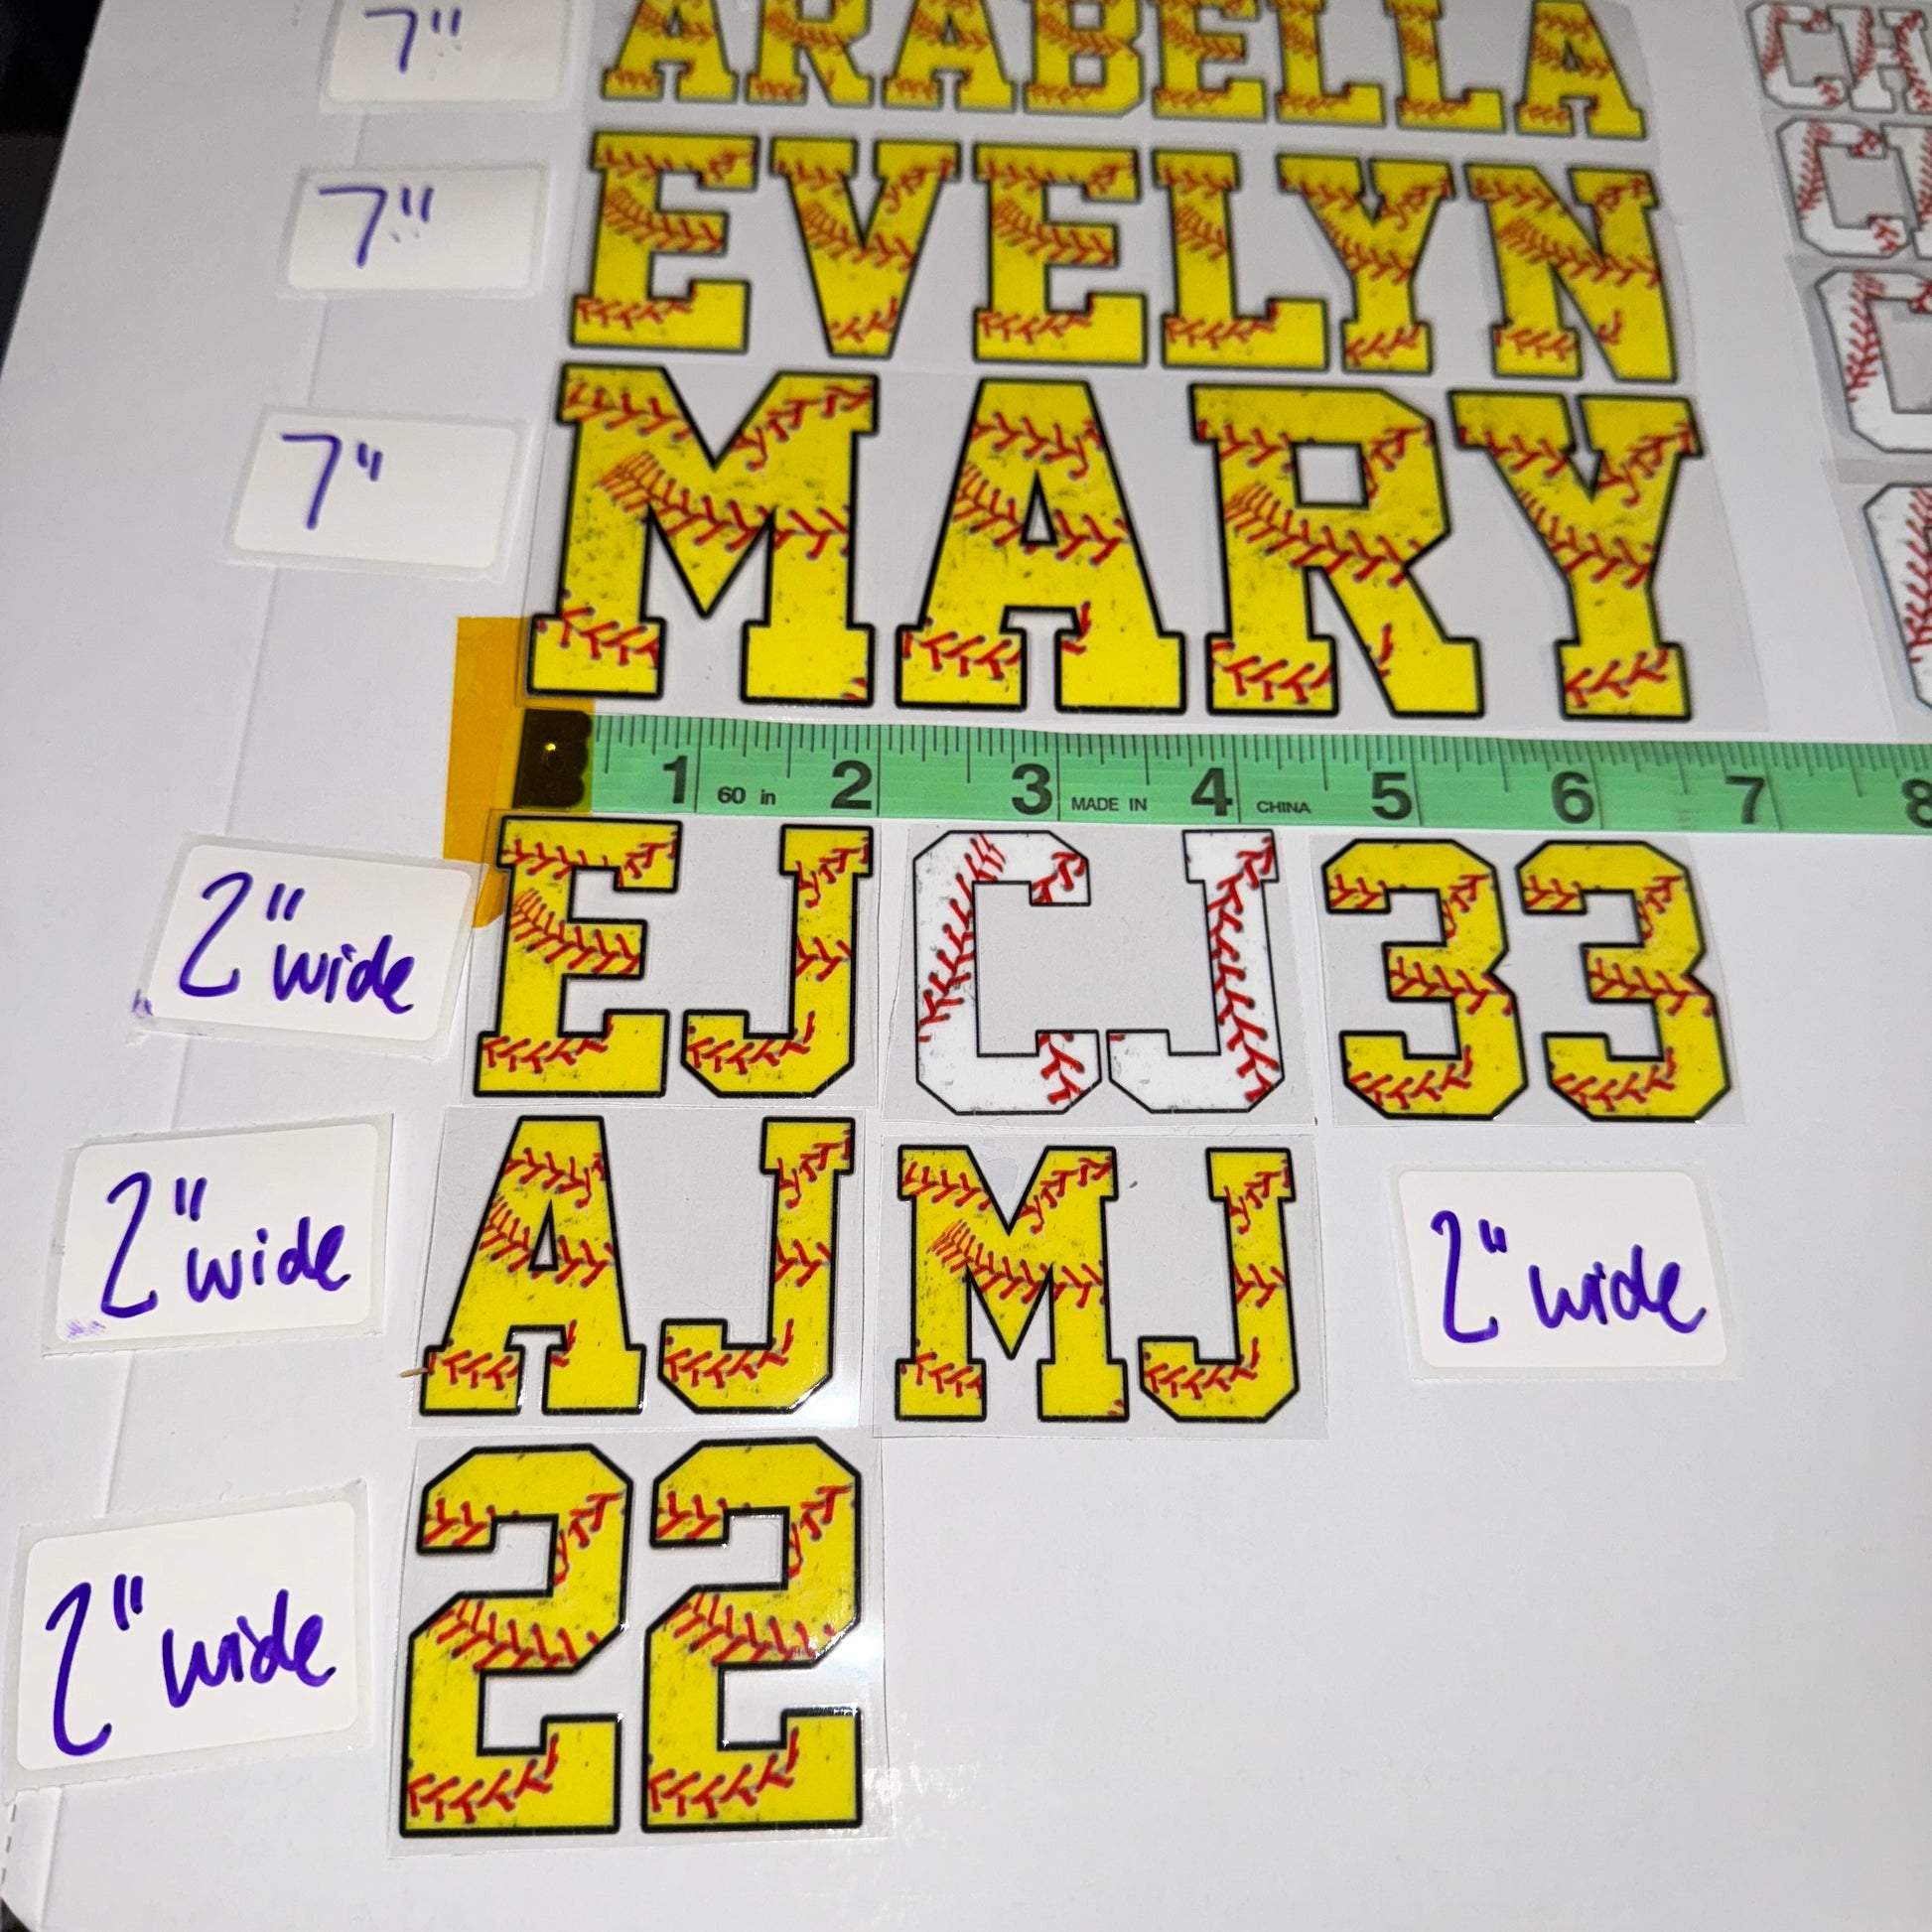 7" ARABELLA CH
7" EVELYN C
7" MARY
1 60 in 2 3 MADE IN 4 CHINA 5 6 7 8
2" wide EJ CJ 33
2" wide AJ MJ 2" wide
2" wide 22